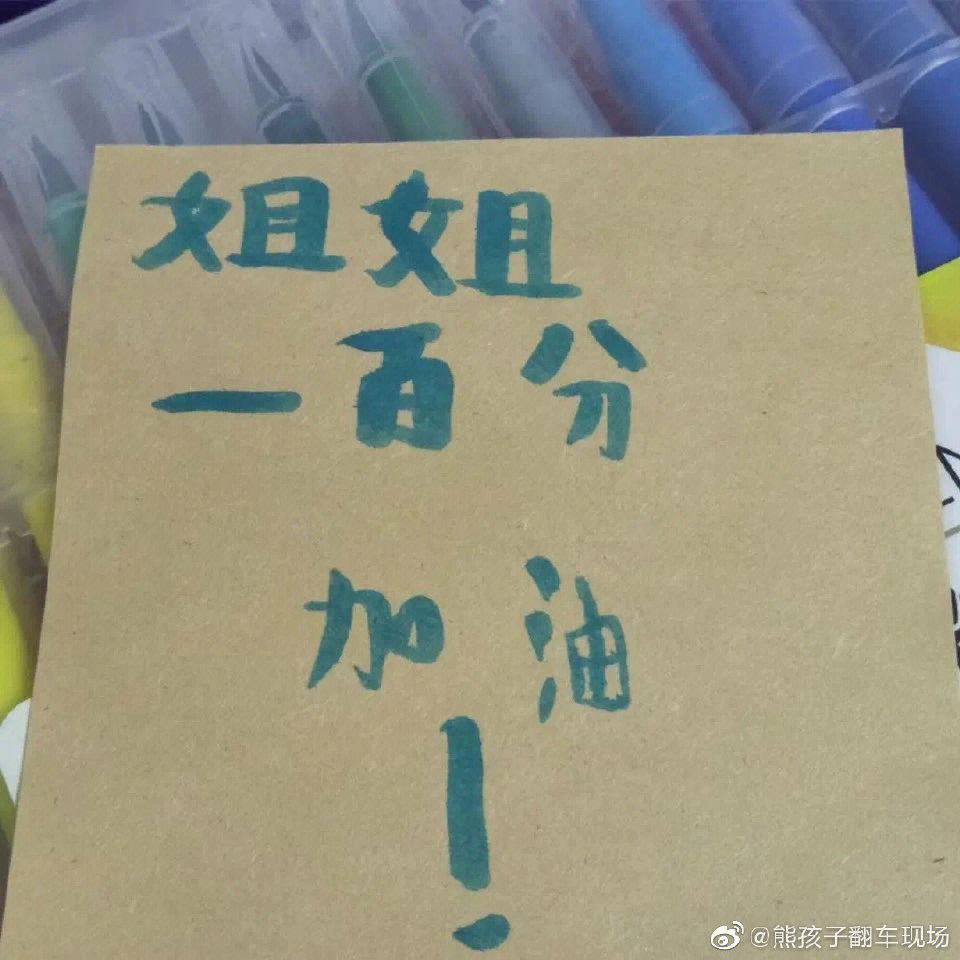 姐姐
一百分
加油
！
@熊孩子翻车现场